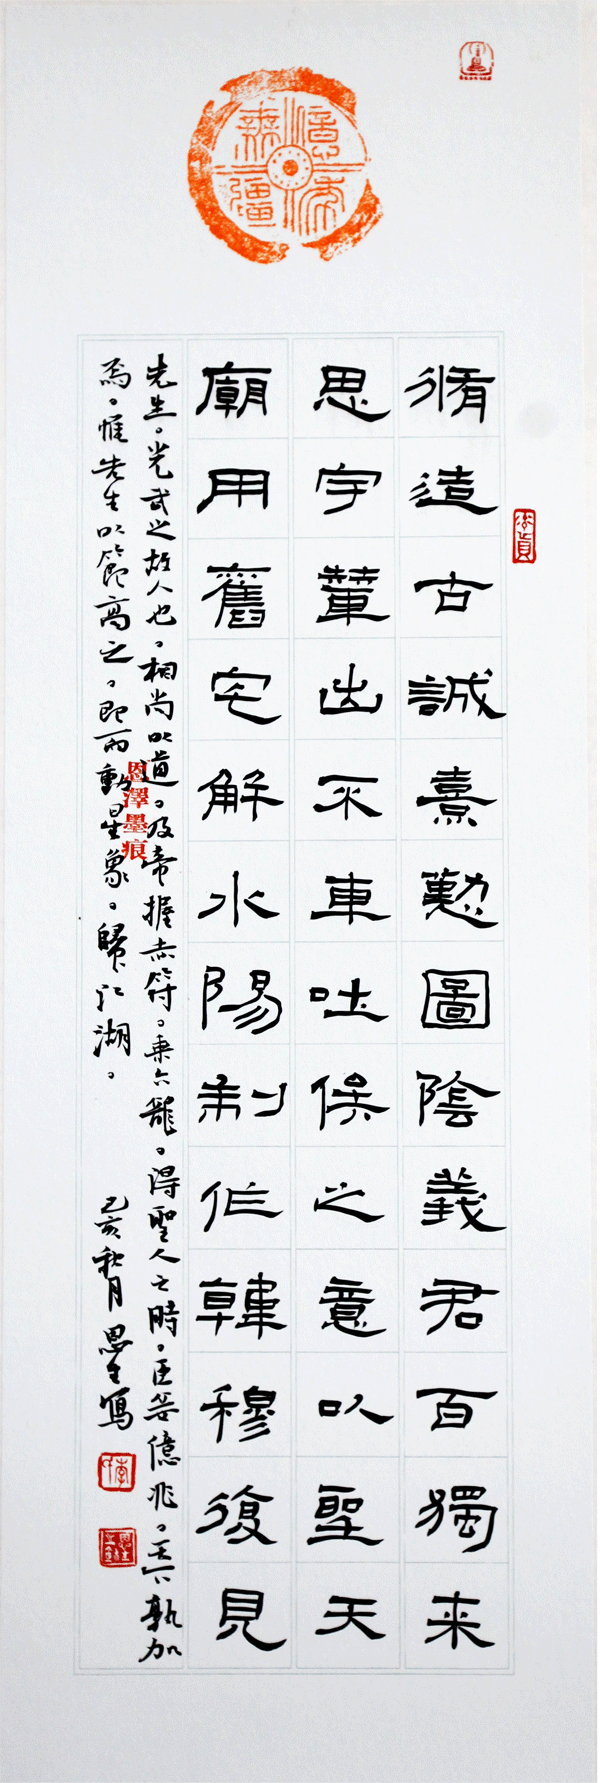 億年無疆
脩造古誠憙勲圖陰義君百獨来
思宇輦出不車吐保之意以聖天
廟用舊宅解水陽制作韓穆復見
先生。光武之故人也。相尚以道。及帝握赤符。乘六龍。得聖人之時。臣妾億兆。天下孰加
焉。惟先生以節高之。即而動星象。歸江湖。
己亥秋月 思生寫
恩澤墨痕